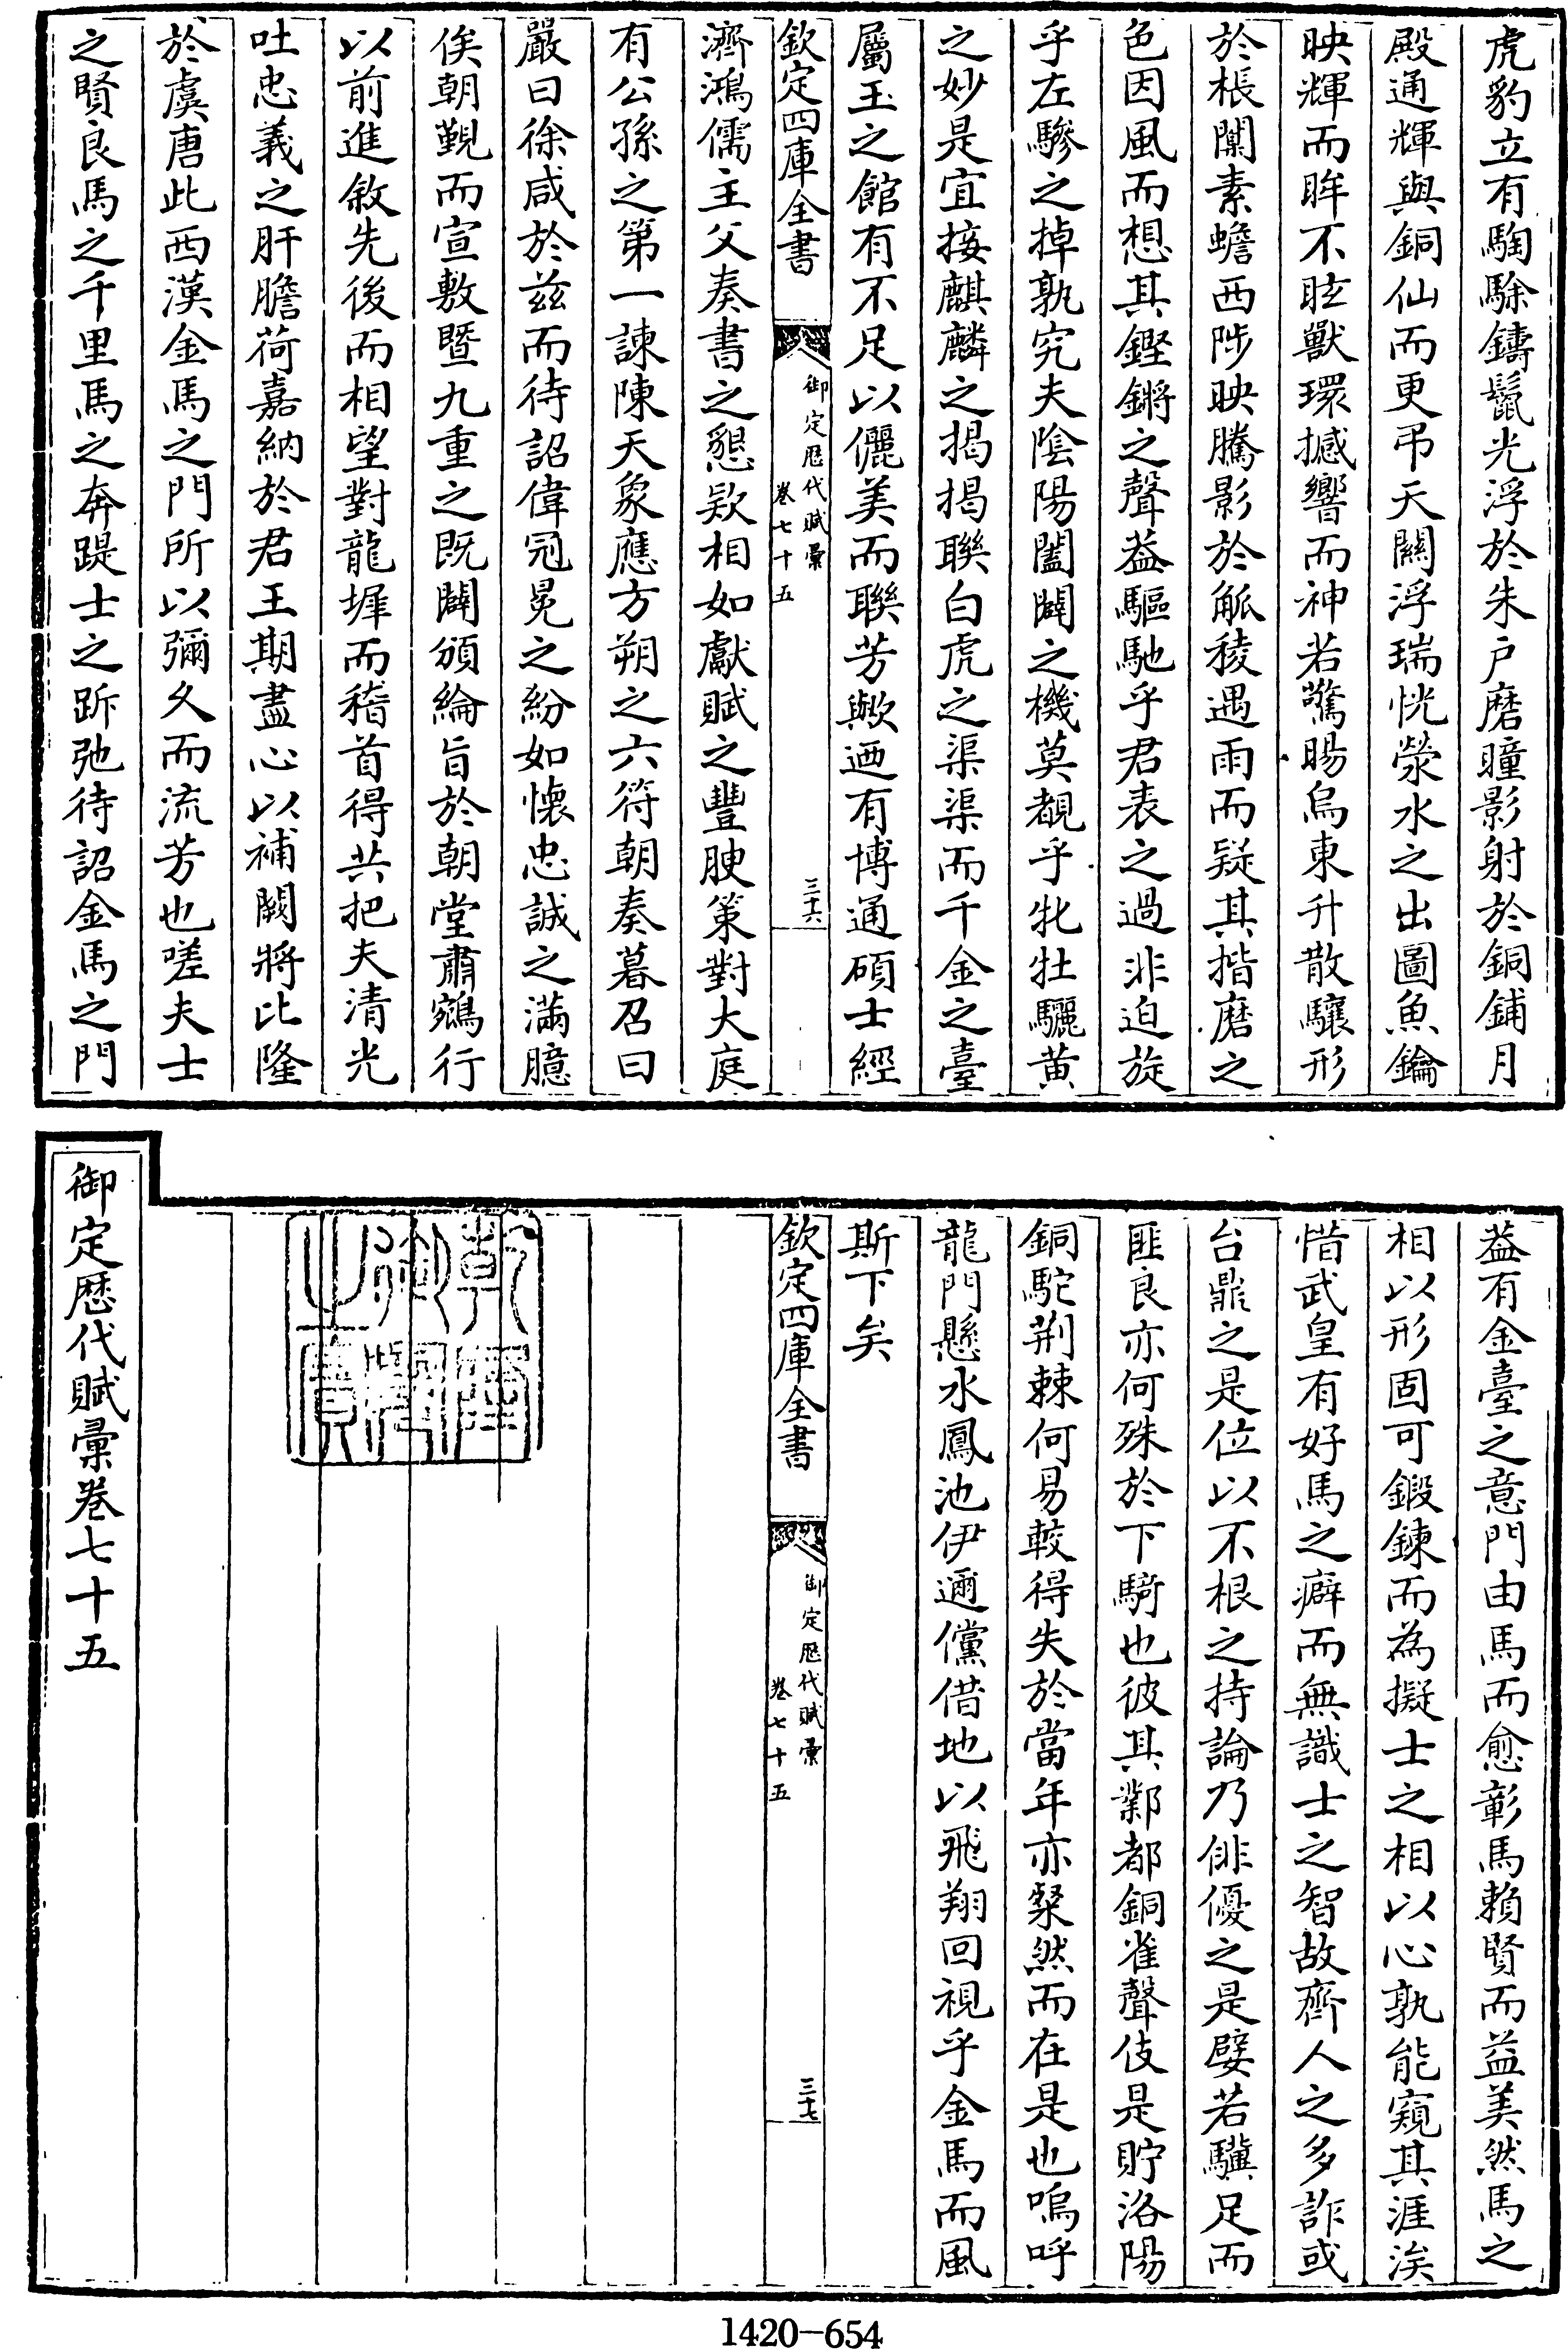 虎豹立有騊駼鑄鬛光浮於朱户磨曈影射於銅鋪月
殿通輝與銅仙而更弔天闕浮瑞恍滎水之出圖魚鑰
映輝而眸不眩獸環撼響而神若驚暘烏東升散驤形
於棖闑素蟾西陟映騰影於觚稜遇雨而疑其揩磨之
色因風而想其鏗鏘之聲葢驅馳乎君表之過非迫旋
乎左驂之掉孰究夫陰陽闔闢之機莫覩乎牝牡驪黄
之妙是宜接麒麟之掲掲聯白虎之渠渠而千金之臺
屬玉之館有不足以儷美而聯芳歟迺有博通碩士經
欽定四庫全書
御定歴代賦彚
卷七十五
三十六
濟鴻儒主父奏書之懇欵相如獻賦之豐腴策對大庭
有公孫之第一諫陳天象應方朔之六符朝奏暮召曰
嚴曰徐咸於兹而待詔偉冠冕之紛如懐忠誠之滿臆
俟朝覲而宣敷暨九重之既闢頒綸旨於朝堂肅鵷行
以前進敘先後而相望對龍墀而稽首得共把夫清光
吐忠義之肝膽荷嘉納於君王期盡心以補闕將比隆
於虞唐此西漢金馬之門所以彌久而流芳也嗟夫士
之賢良馬之千里馬之奔踶士之跅弛待詔金馬之門
葢有金臺之意門由馬而愈彰馬頼賢而益美然馬之
相以形固可鍛鍊而為擬士之相以心孰能窺其涯涘
惜武皇有好馬之癖而無識士之智故齊人之多詐或
台鼎之是位以不根之持論乃俳優之是嬖若驥足而
匪良亦何殊於下騎也彼其鄴都銅雀聲伎是貯洛陽
銅駝荆棘何易較得失於當年亦粲然而在是也嗚呼
龍門懸水鳳池伊邇儻借地以飛翔回視乎金馬而風
斯下矣
欽定四庫全書
御定歴代賦彚
卷七十五
三十七
乾隆御覽之寶
御定歴代賦彚卷七十五
1420-654